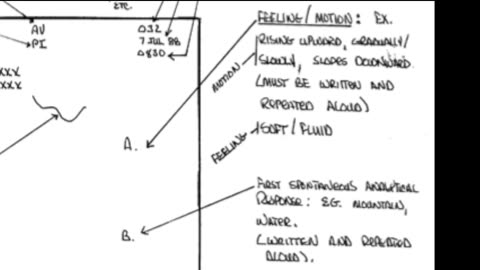 ETC.
AV
PI
032
7 JUL 88
0830
XXX
XXX
A.
B.
FEELING/MOTION: EX.
RISING UPWARD, GRADUALLY/
SLOWLY, SLOPES DOWNWARD.
(MUST BE WRITTEN AND
REPEATED ALOUD)
MOTION
SOFT/FLUID
FEELING
FIRST SPONTANEOUS ANALYTICAL
RESPONSE: EG. MOUNTAIN,
WATER.
(WRITTEN AND REPEATED
ALOUD).